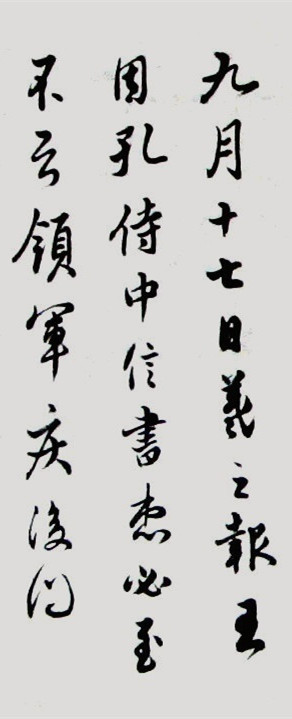 九月十七日羲之報王
因孔侍中信書想必至
不領軍疾後問